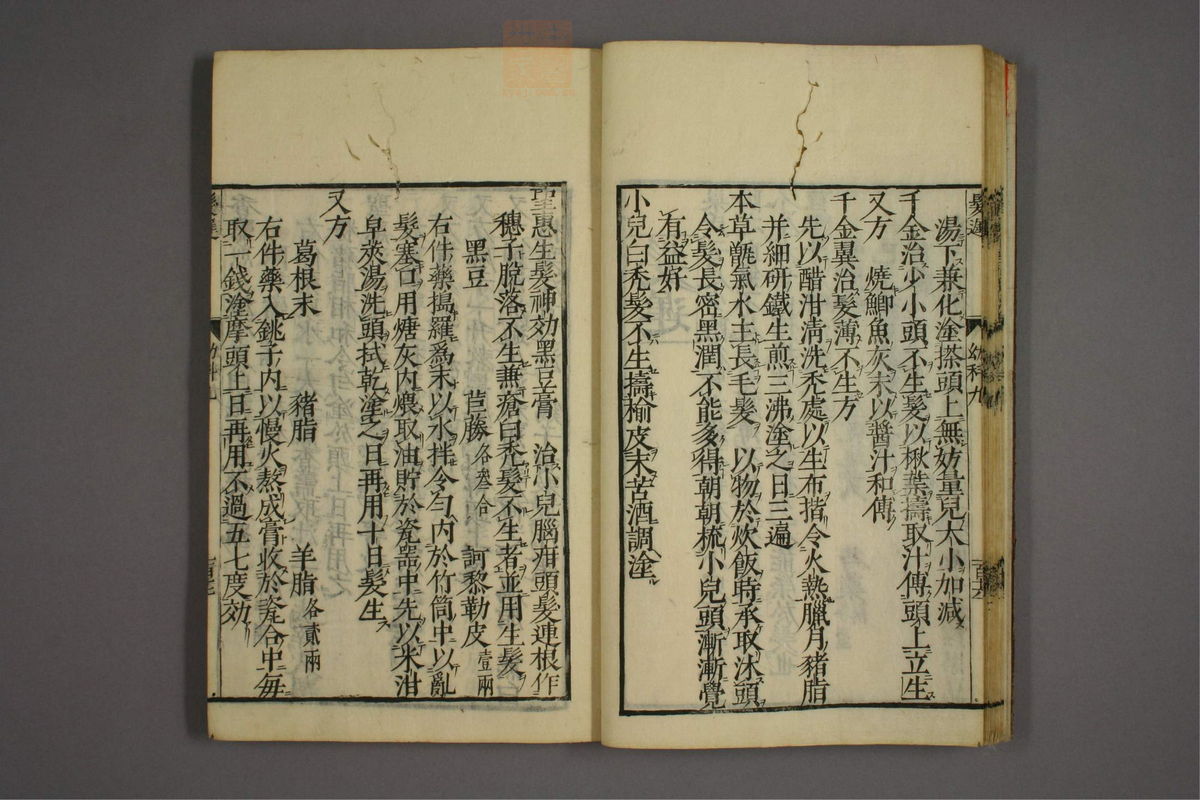 湯下兼化塗搽頭上無妨量兒大小加減
千金治少小頭不生髮以楸葉擣取汁傅頭上立生
又方　燒鯽魚灰末以醬汁和傅
千金翼治髮薄不生方
先以醋泔清洗禿處以生布揩令火熱臘月豬脂
并細研鐵生煎三沸塗之日三遍
本草甑氣水主長毛髮　以物於炊飯時承取沐頭
令髮長密黑潤不能多得朝朝梳小兒頭漸漸覺
有益好
小兒白禿髮不生擣榆皮末苦酒調塗
聖惠生髮神効黑豆膏　治小兒腦疳頭髮連根作
穗子脫落不生兼瘡白禿髮不生者並用生髮
黑豆　苣藤各叁合　訶黎勒皮壹兩
右件藥搗羅爲末以水拌令勻內於竹筒中以亂
髮塞口用煻灰內煨取油貯於瓷器中先以米泔
皁莢湯洗頭拭乾塗之日再用十日髮生
又方
葛根末　豬脂　羊脂各貳兩
右件藥入銚子內以慢火熬成膏收於瓷合中每
取一錢塗摩頭上日再用不過五七度効
幼科九